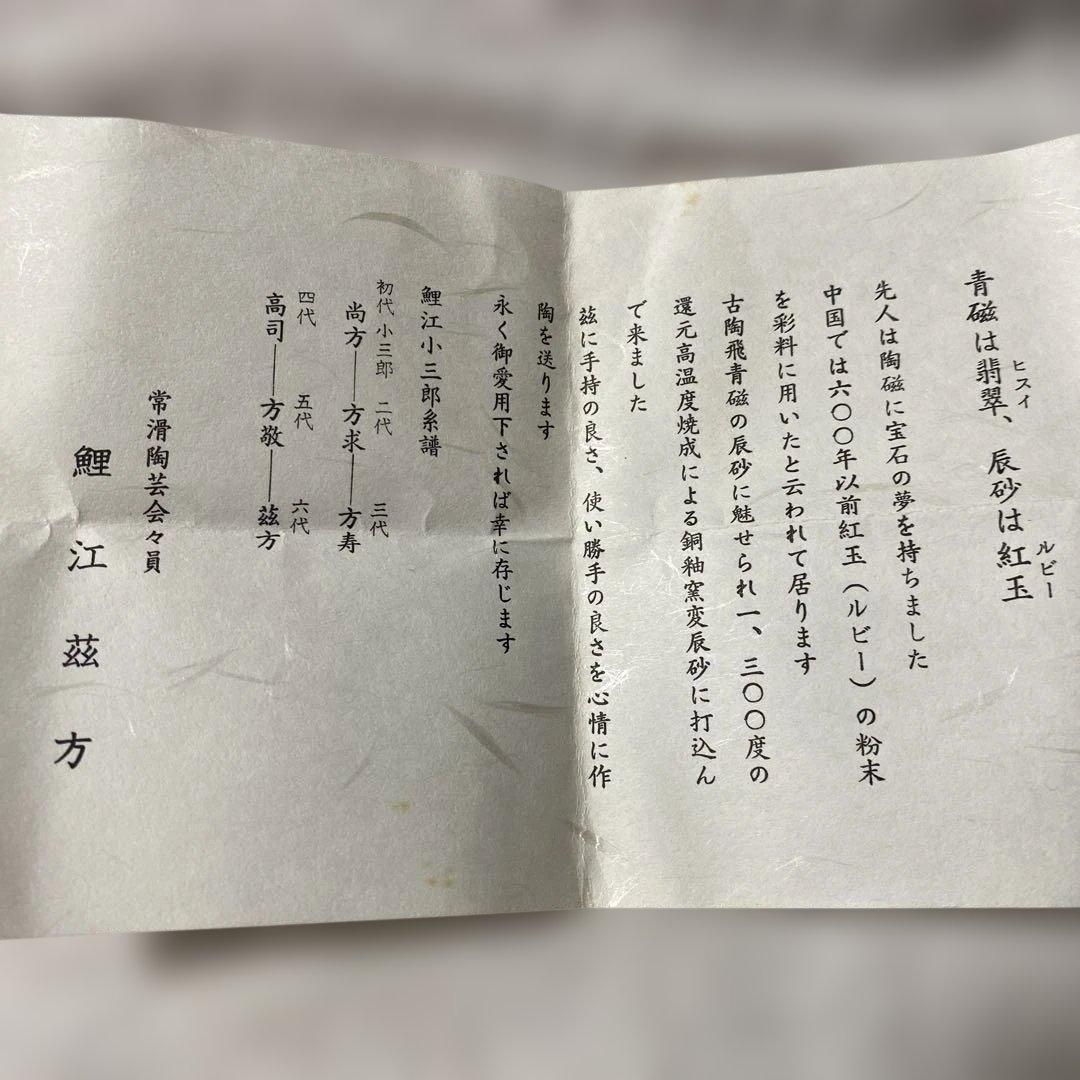 青磁は翡翠、辰砂は紅玉
ヒスイ
ルビー
先人は陶磁に宝石の夢を持ちました
中国では六〇〇年以前紅玉（ルビー）の粉末
を彩料に用いたと云われて居ります
古陶飛青磁の辰砂に魅せられ一、三〇〇度の
還元高温度焼成による銅釉窯変辰砂に打込ん
で来ました
茲に手持の良さ、使い勝手の良さを心情に作
陶を送ります
永く御愛用下されば幸に存じます
鯉江小三郎系譜
初代 小三郎 二代 三代
尚方――方求――方寿
四代 五代 六代
高司――方敬――茲方
常滑陶芸会々員
鯉江茲方